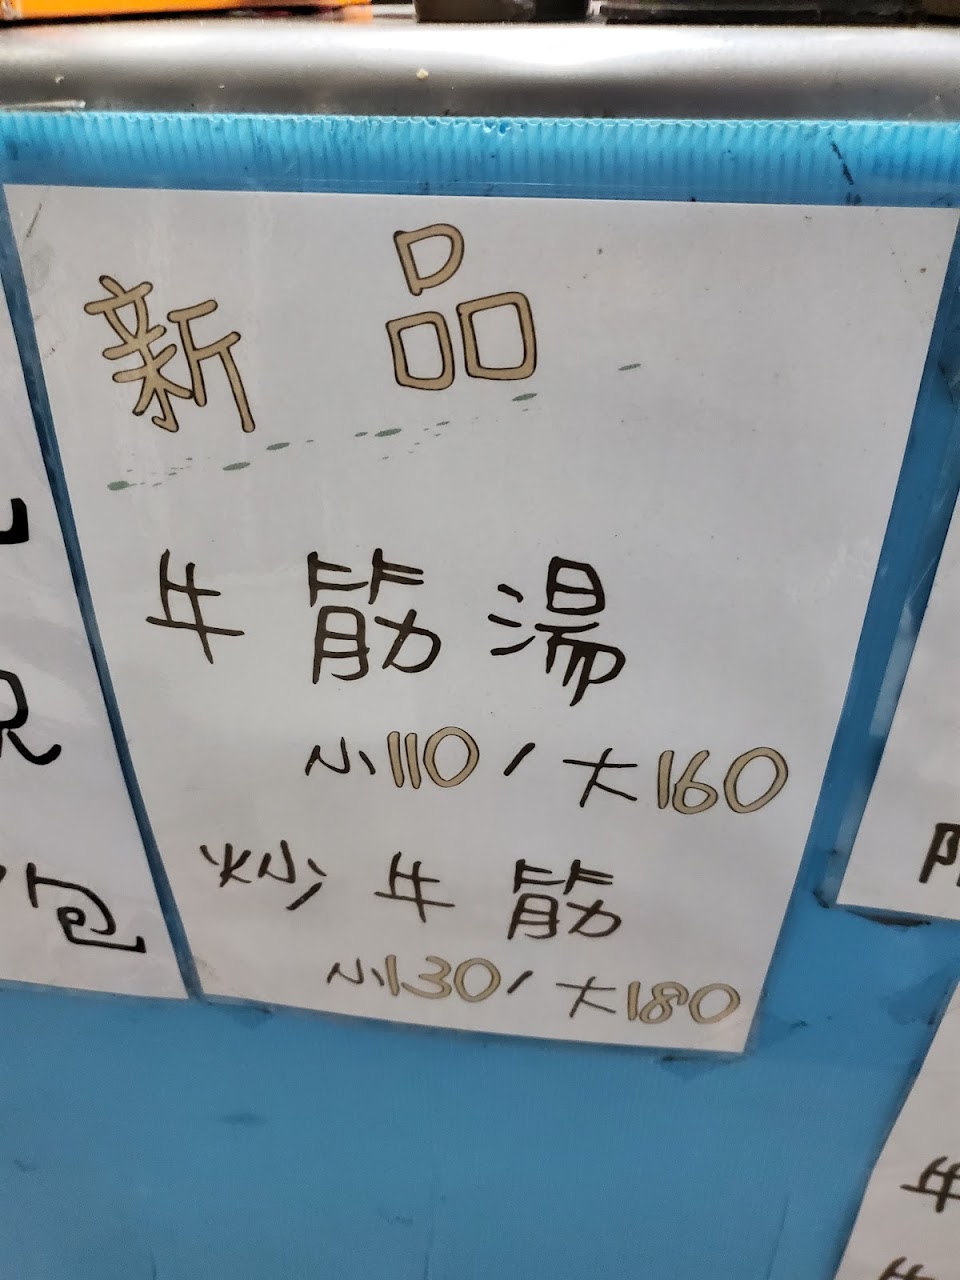 新品
牛筋湯
小110/大160
炒牛筋
小130/大180
包
牛